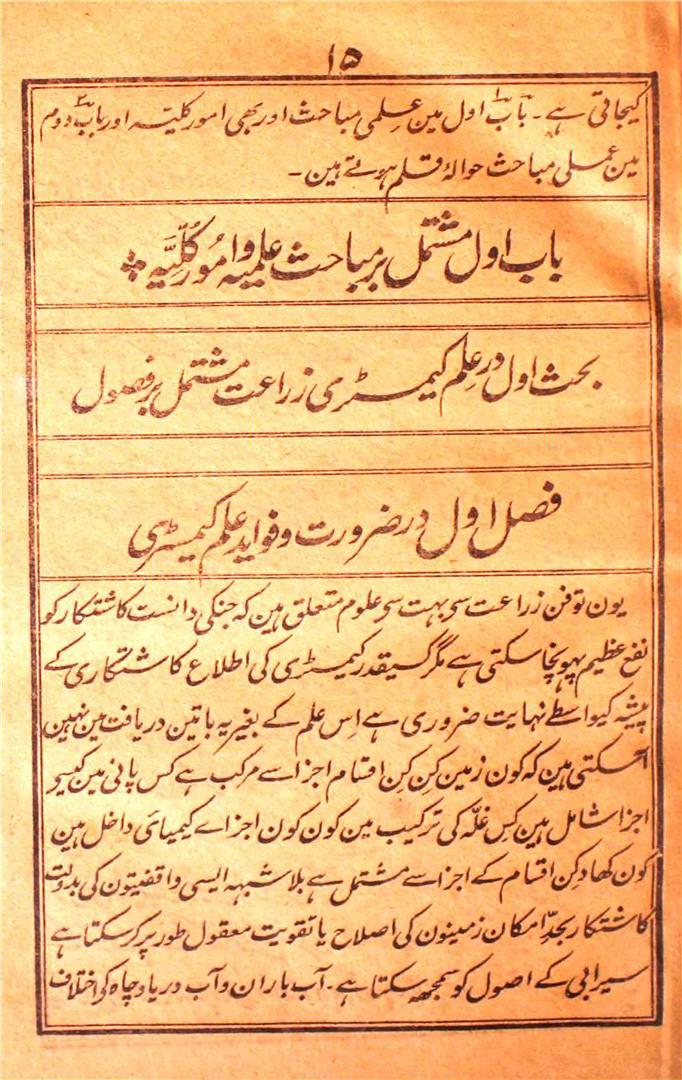 ۱۵
کیجاتی ہے۔ باب اول مین علمی مباحث اور بھی امور کلیتہ اور باب دوم
مین عملی مباحث حوالۂ قلم ہوتے ہین۔
باب اول مشتمل بر مباحث علمیہ و امور کُلّیَّہ
بحث اول در علم کیمسٹری زراعت مشتمل بر فصول
فصل اول در ضرورت و فواید علم کیمسٹری
یون تو فن زراعت سے بہت سے علوم متعلق ہین کہ جنکی دانست کاشتکار کو
نفع عظیم پہونچا سکتی ہے مگر کسیقدر کیمسٹری کی اطلاع کاشتکاری کے
پیشہ کیواسطے نہایت ضروری ہے اِس علم کے بغیر یہ باتین دریافت مین نہین
آسکتی ہین کہ کون زمین کِن کِن اقسام اجزا سے مرکب ہے کس پانی مین کیسے
اجزا شامل ہین کِس غلّہ کی ترکیب مین کون کون اجزاے کیمیائی داخل ہین
کون کھاد کِن اقسام کے اجزا سے مشتمل ہے بلاشبہہ ایسی واقفیتون کی بدولت
کاشتکار بحدِّ امکان زمینون کی اصلاح یا تقویت معقول طور پر کر سکتا ہے
سیرابی کے اصول کو سمجھ سکتا ہے۔ آب باران و آب دریا و چاہ کی اختلاف